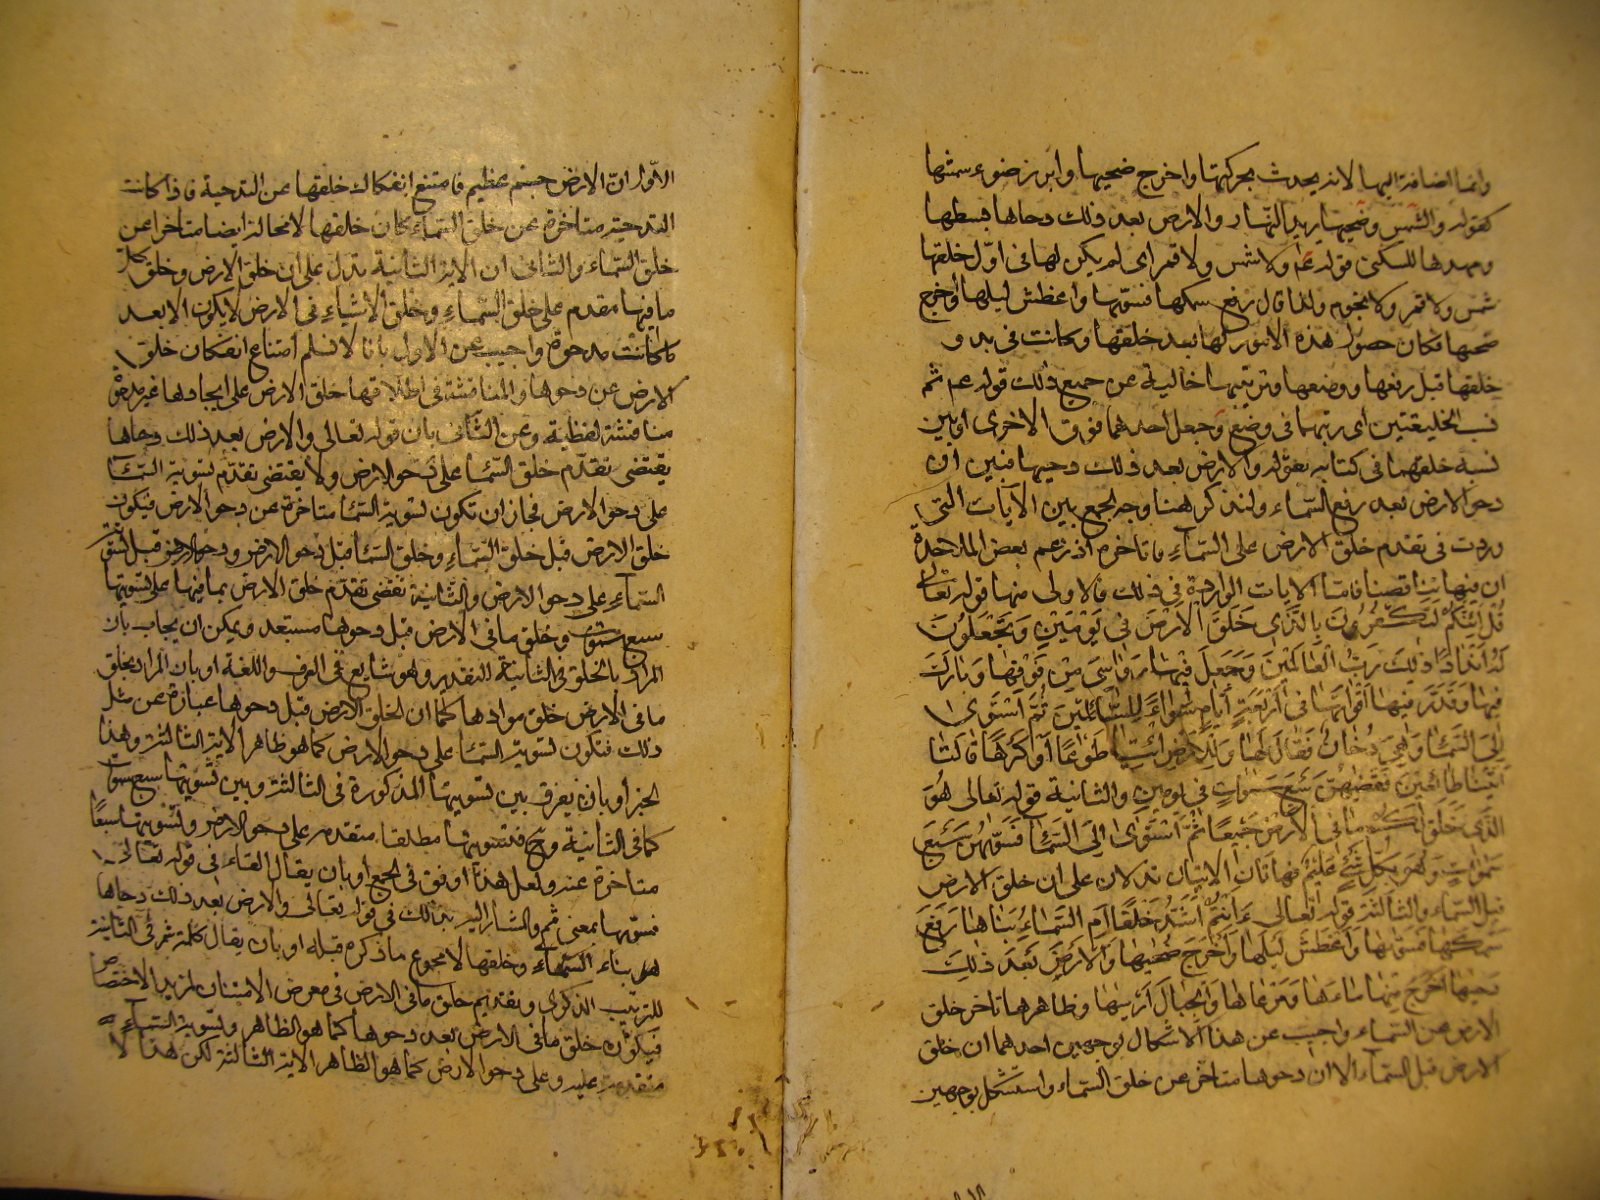 وانما اضافة اليها لانه يحدث بحركتها واخرج ضحيها وابرز ضوء شمسها
كقوله والشمس وضحيها يريد النهار والارض بعد ذلك دحاها بسطها
ومهدها للسكنى قوله عم ولا شمس ولا قمر اى لم يكن لها فى اول خلقها
شمس ولا قمر ولا نجوم ولذا قال رفع سمكها فسوّيها واغطش ليلها واخرج
ضحيها فكان حصول هذه الامور لها بعد خلقها وكانت فى بدو
خلقها قبل رفعها ووضعها وترتيبها خالية عن جميع ذلك قوله عم ثم
نسب الخليقتين اى رتبهما فى وضع وجعل احدهما فوق الاخرى او بين
نسبة خلقهما فى كتابه بقوله والارض بعد ذلك دحيها فبين ان
دحو الارض بعد رفع السماء ولنذكر ههنا وجه الجمع بين الآيات التى
وردت فى تقدم خلق الارض على السماء وتاخره اذ زعم بعض الملاحدة
ان فيها تناقضا فامّا الايات الواردة فى ذلك فالاولى منها قوله تعالى
قُلْ اَئِنَّكُمْ لَتَكْفُرُونَ بِالَّذِى خَلَقَ الْاَرْضَ فِى يَوْمَيْنِ وَتَجْعَلُونَ
لَهُ اَنْدَادًا ذٰلِكَ رَبُّ الْعَالَمِينَ وَجَعَلَ فِيْهَا رَوَاسِىَ مِنْ فَوْقِهَا وَبَارَكَ
فِيهَا وَقَدَّرَ فِيهَا اَقْوَاتَهَا فِى اَرْبَعَةِ اَيَّامٍ سَوَاءً لِلسَّائِلِينَ ثُمَّ اسْتَوَى
اِلَى السَّمَاءِ وَهِىَ دُخَانٌ فَقَالَ لَهَا وَلِلْاَرْضِ ائْتِيَا طَوْعًا اَوْ كَرْهًا قَالَتَا
اَتَيْنَا طَائِعِينَ فَقَضٰيهُنَّ سَبْعَ سَمٰوَاتٍ فِى يَوْمَيْنِ والثانية قوله تعالى هُوَ
الَّذِى خَلَقَ لَكُمْ مَا فِى الْاَرْضِ جَمِيعًا ثُمَّ اسْتَوٰى اِلَى السَّمَاءِ فَسَوّٰيهُنَّ سَبْعَ
سَمٰوَاتٍ وَهُوَ بِكُلِّ شَئٍ عَلِيمٌ فهاتان الايتان تدلان على ان خلق الارض
قبل السماء والثالثة قوله تعالى ءَاَنْتُمْ اَشَدُّ خَلْقًا اَمِ السَّمَاءُ بَنَاهَا رَفَعَ
سَمْكَهَا فَسَوّٰيهَا وَاَغْطَشَ لَيْلَهَا وَاَخْرَجَ ضُحٰيهَا وَالْاَرْضَ بَعْدَ ذٰلِكَ
دَحٰيهَا اَخْرَجَ مِنْهَا مَاءَهَا وَمَرْعَاهَا وَالْجِبَالَ اَرْسٰيهَا وظاهرها تاخر خلق
الارض عن السماء واجيب عن هذا الاشكال بوجهين احدهما ان خلق
الارض قبل السماء الا ان دحوها متاخر عن خلق السماء واستشكل بوجهين
الاول ان الارض جسم عظيم فامتنع انفكاك خلقها عن التدحية فاذا كانت
التدحية متاخرة عن خلق السماء كان خلقها لا محالة ايضا متاخرا عن
خلق السماء والثانى ان الاية الثانية تدل على ان خلق الارض وخلق كل
ما فيها مقدم على خلق السماء وخلق الاشياء فى الارض لا يكون الا بعد
ما كانت مدحوة واجيب عن الاول بانا لا نسلم امتناع انفكاك خلق
الارض عن دحوها والمناقشة فى اطلاق خلق الارض على ايجادها غير مدحوة
مناقشة لفظية وعن الثانى بان قوله تعالى والارض بعد ذلك دحاها
يقتضى تقدّم خلق السماء على دحو الارض ولا يقتضى تقدّم تسوية السماء
على دحو الارض فجاز ان تكون تسوية السماء متاخرة عن دحو الارض فيكون
خلق الارض قبل خلق السماء وخلق السماء قبل دحو الارض ودحو الارض قبل تسوية
السماء على دحو الارض والثانية تقتضى تقدم خلق الارض بما فيها على تسويتها
سبع سموات وخلق ما فى الارض قبل دحوها مستبعد ويمكن ان يجاب بان
المراد بالخلق فى الثانية التقدير وهو شايع فى العرف واللغة او بان المراد بخلق
ما فى الارض خلق موادها كما ان خلق الارض قبل دحوها عبارة عن مثل
ذلك فتكون تسوية السماء على دحو الارض كما هو ظاهر الاية الثالثة وهذا
او بان يفرق بين تسويتها المذكورة فى الثالثة وبين تسويتها سبع سموات
كما فى الثانية وح فتسويتها مطلقا متقدمة على دحو الارض وتسويتها سبعًا
متاخرة عنه ولعل هذا اوفق فى الجمع او بان يقال الفاء فى قوله تعالى
فسوّيها بمعنى ثم والمشار اليه بذلك فى قوله تعالى والارض بعد ذلك دحاها
هو بناء السماء وخلقها لا مجموع ما ذكره قبله او بان يقال كلمة ثم فى الثانية
للترتيب الذكرى وتقديم خلق ما فى الارض فى معرض الامتنان لمزيد الاختصاص
فيكون خلق ما فى الارض بعد دحوها كما هو الظاهر وتسوية السماء
متقدمة عليه وعلى دحو الارض كما هو الظاهر الاية الثالثة لكن هذا لا